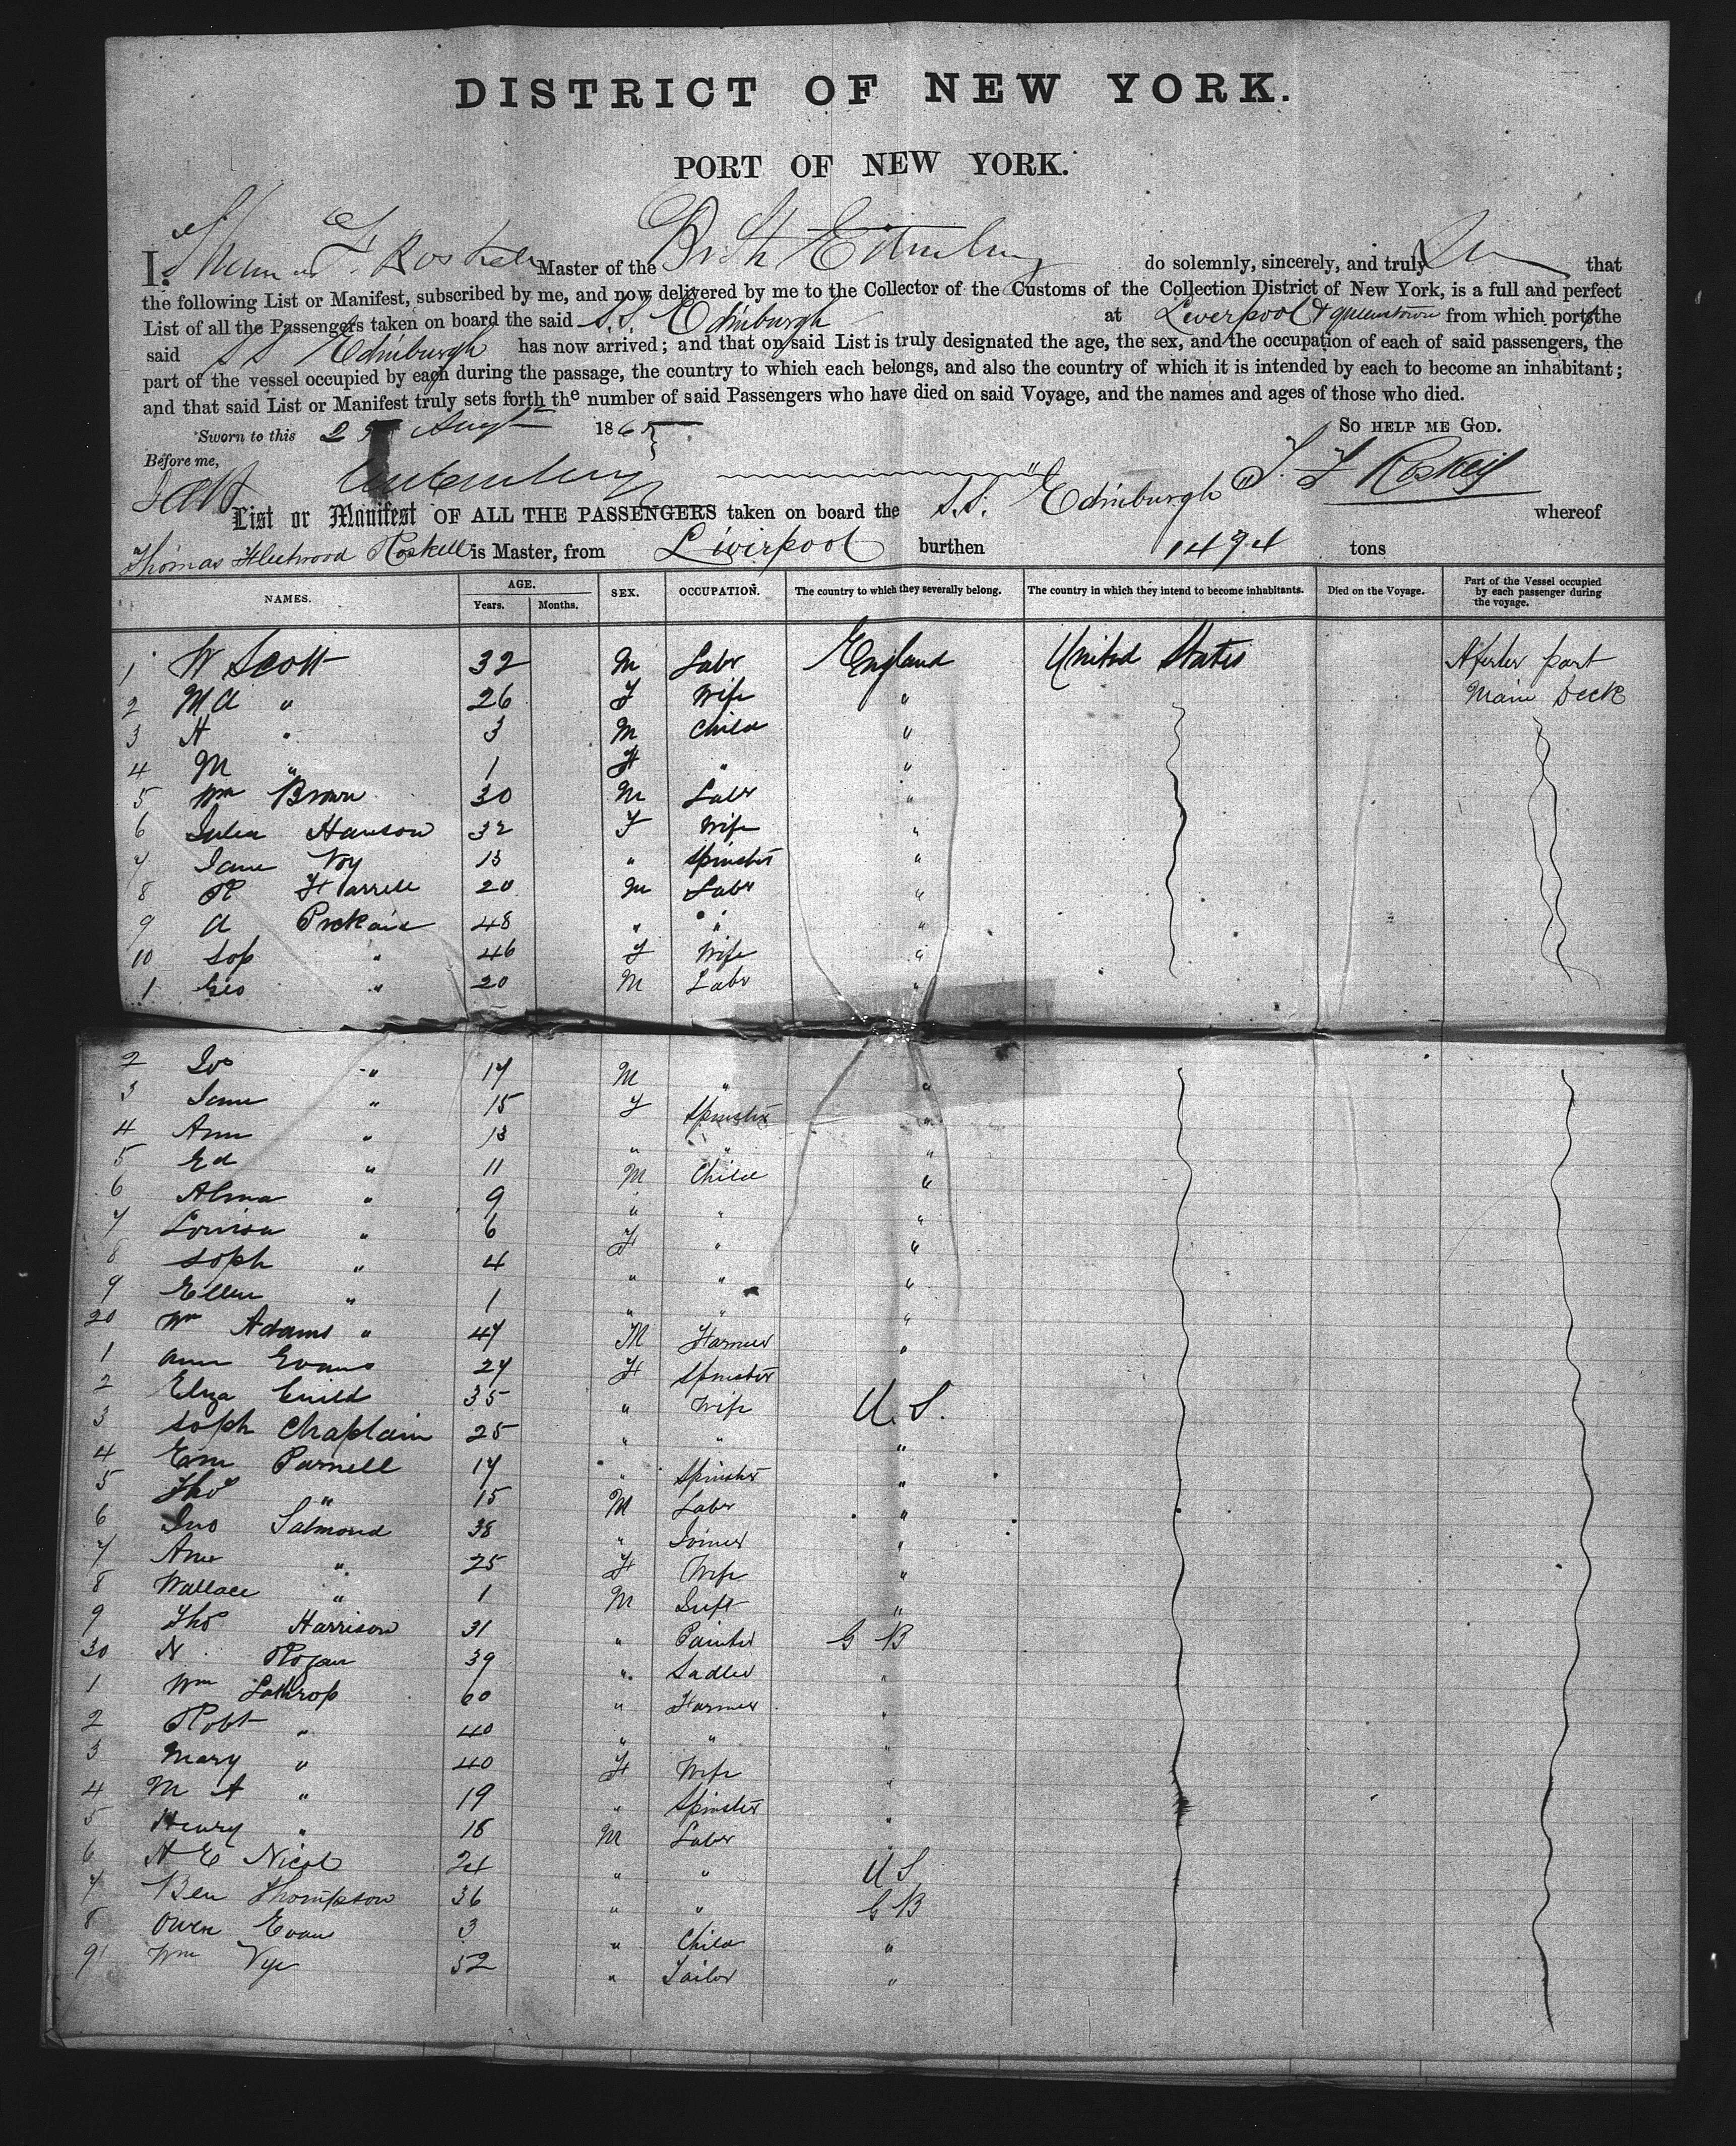 DISTRICT OF NEW YORK.
PORT OF NEW YORK.
I, Thomas F. Roskell Master of the Brit Str Edinburg do solemnly, sincerely, and truly that
the following List or Manifest, subscribed by me, and now delivered by me to the Collector of the Customs of the Collection District of New York, is a full and perfect
List of all the Passengers taken on board the said S.S. Edinburgh at Liverpool & Queenstown from which ports the
said S S Edinburgh has now arrived; and that on said List is truly designated the age, the sex, and the occupation of each of said passengers, the
part of the vessel occupied by each during the passage, the country to which each belongs, and also the country of which it is intended by each to become an inhabitant;
and that said List or Manifest truly sets forth the number of said Passengers who have died on said Voyage, and the names and ages of those who died.
Sworn to this Augt 1865 SO HELP ME GOD.
Before me,
T. F Roskell
List or Manifest OF ALL THE PASSENGERS taken on board the S.S. "Edinburgh" whereof
Thomas Fleetwood Roskell is Master, from Liverpool burthen 1494 tons
NAMES. AGE. Years. Months. SEX. OCCUPATION. The country to which they severally belong. The country in which they intend to become inhabitants. Died on the Voyage. Part of the Vessel occupied by each passenger during the voyage.
1 W Scott 32 M Labr England United States After part
2 M A " 26 F Wife " Main Deck
3 H " 3 M Child "
4 M " 1 F " "
5 Wm Brown 30 M Labr "
6 Julia Hanson 32 F Wife "
7 Jane Voy 13 " Spinster "
8 R Harrell 20 M Labr "
9 A 48 " " "
10 Sop " 46 F Wife "
1 Geo " 20 M Labr "
2 Jos " 17 M " "
3 Jane " 15 F Spinster "
4 Ann " 13 " " "
5 Ed " 11 M Child "
6 Alma " 9 " " "
7 Louisa " 6 F " "
8 Soph " 4 " " "
9 Ellen " 1 " " "
20 Wm Adams " 47 M Farmer "
1 Ann Evans 27 F Spinster
2 Eliza Guild 35 " Wife U. S.
3 Soph Chaplain 25 " " "
4 Em Parnell 17 " Spinster "
5 Thos " 15 M Labr "
6 Jno Salmond 38 " Joiner "
7 Ann " 25 F Wife "
8 Wallace " 1 M Inft "
9 Thos Harrison 31 " Painter G B
30 N Rogan 39 " Sadler "
1 Wm Lothrop 60 " Farmer "
2 Robt " 40 " " "
3 Mary " 40 F Wife "
4 M A " 19 " Spinster "
5 Henry " 18 M Labr "
6 A E Nicol 24 " " U S
7 Ben Thompson 36 " " G B
8 Owen Evans 3 " Child "
9 Wm Vye 52 " Tailor "